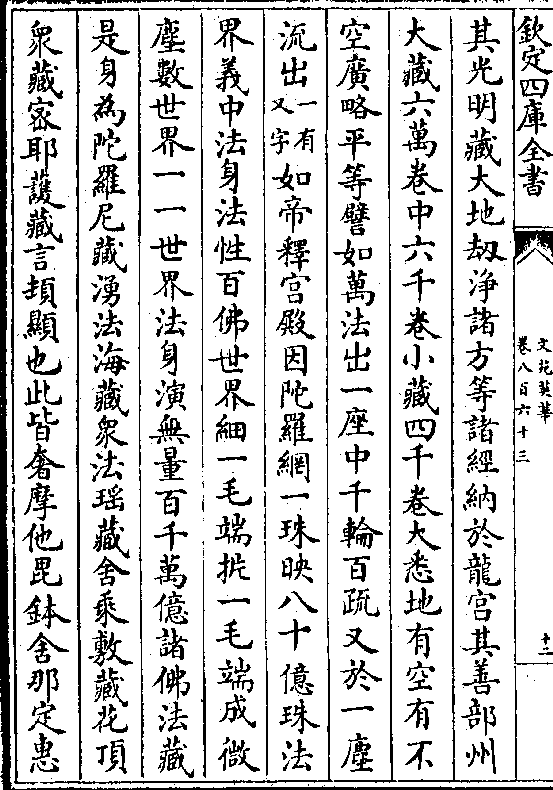 欽定四庫全書
文苑英華
卷八百六十三
十二
其光明藏大地刼淨諸方等諸經納於龍宫其善部州
大藏六萬卷中六千卷小藏四千卷大悉地有空有不
空廣略平等譬如萬法出一座中千輪百疏又於一塵
流出一有又字如帝釋宫殿因陀羅網一珠映八十億珠法
界義中法身法性百佛世界細一毛端扸一毛端成微
塵數世界一一世界法身演無量百千萬億諸佛法藏
是身為陀羅尼藏湧法海藏衆法瑶藏舍乘敷藏花頂
衆藏宻耶䕶藏言頡顯也此皆奢摩他毘鉢舍那定惠